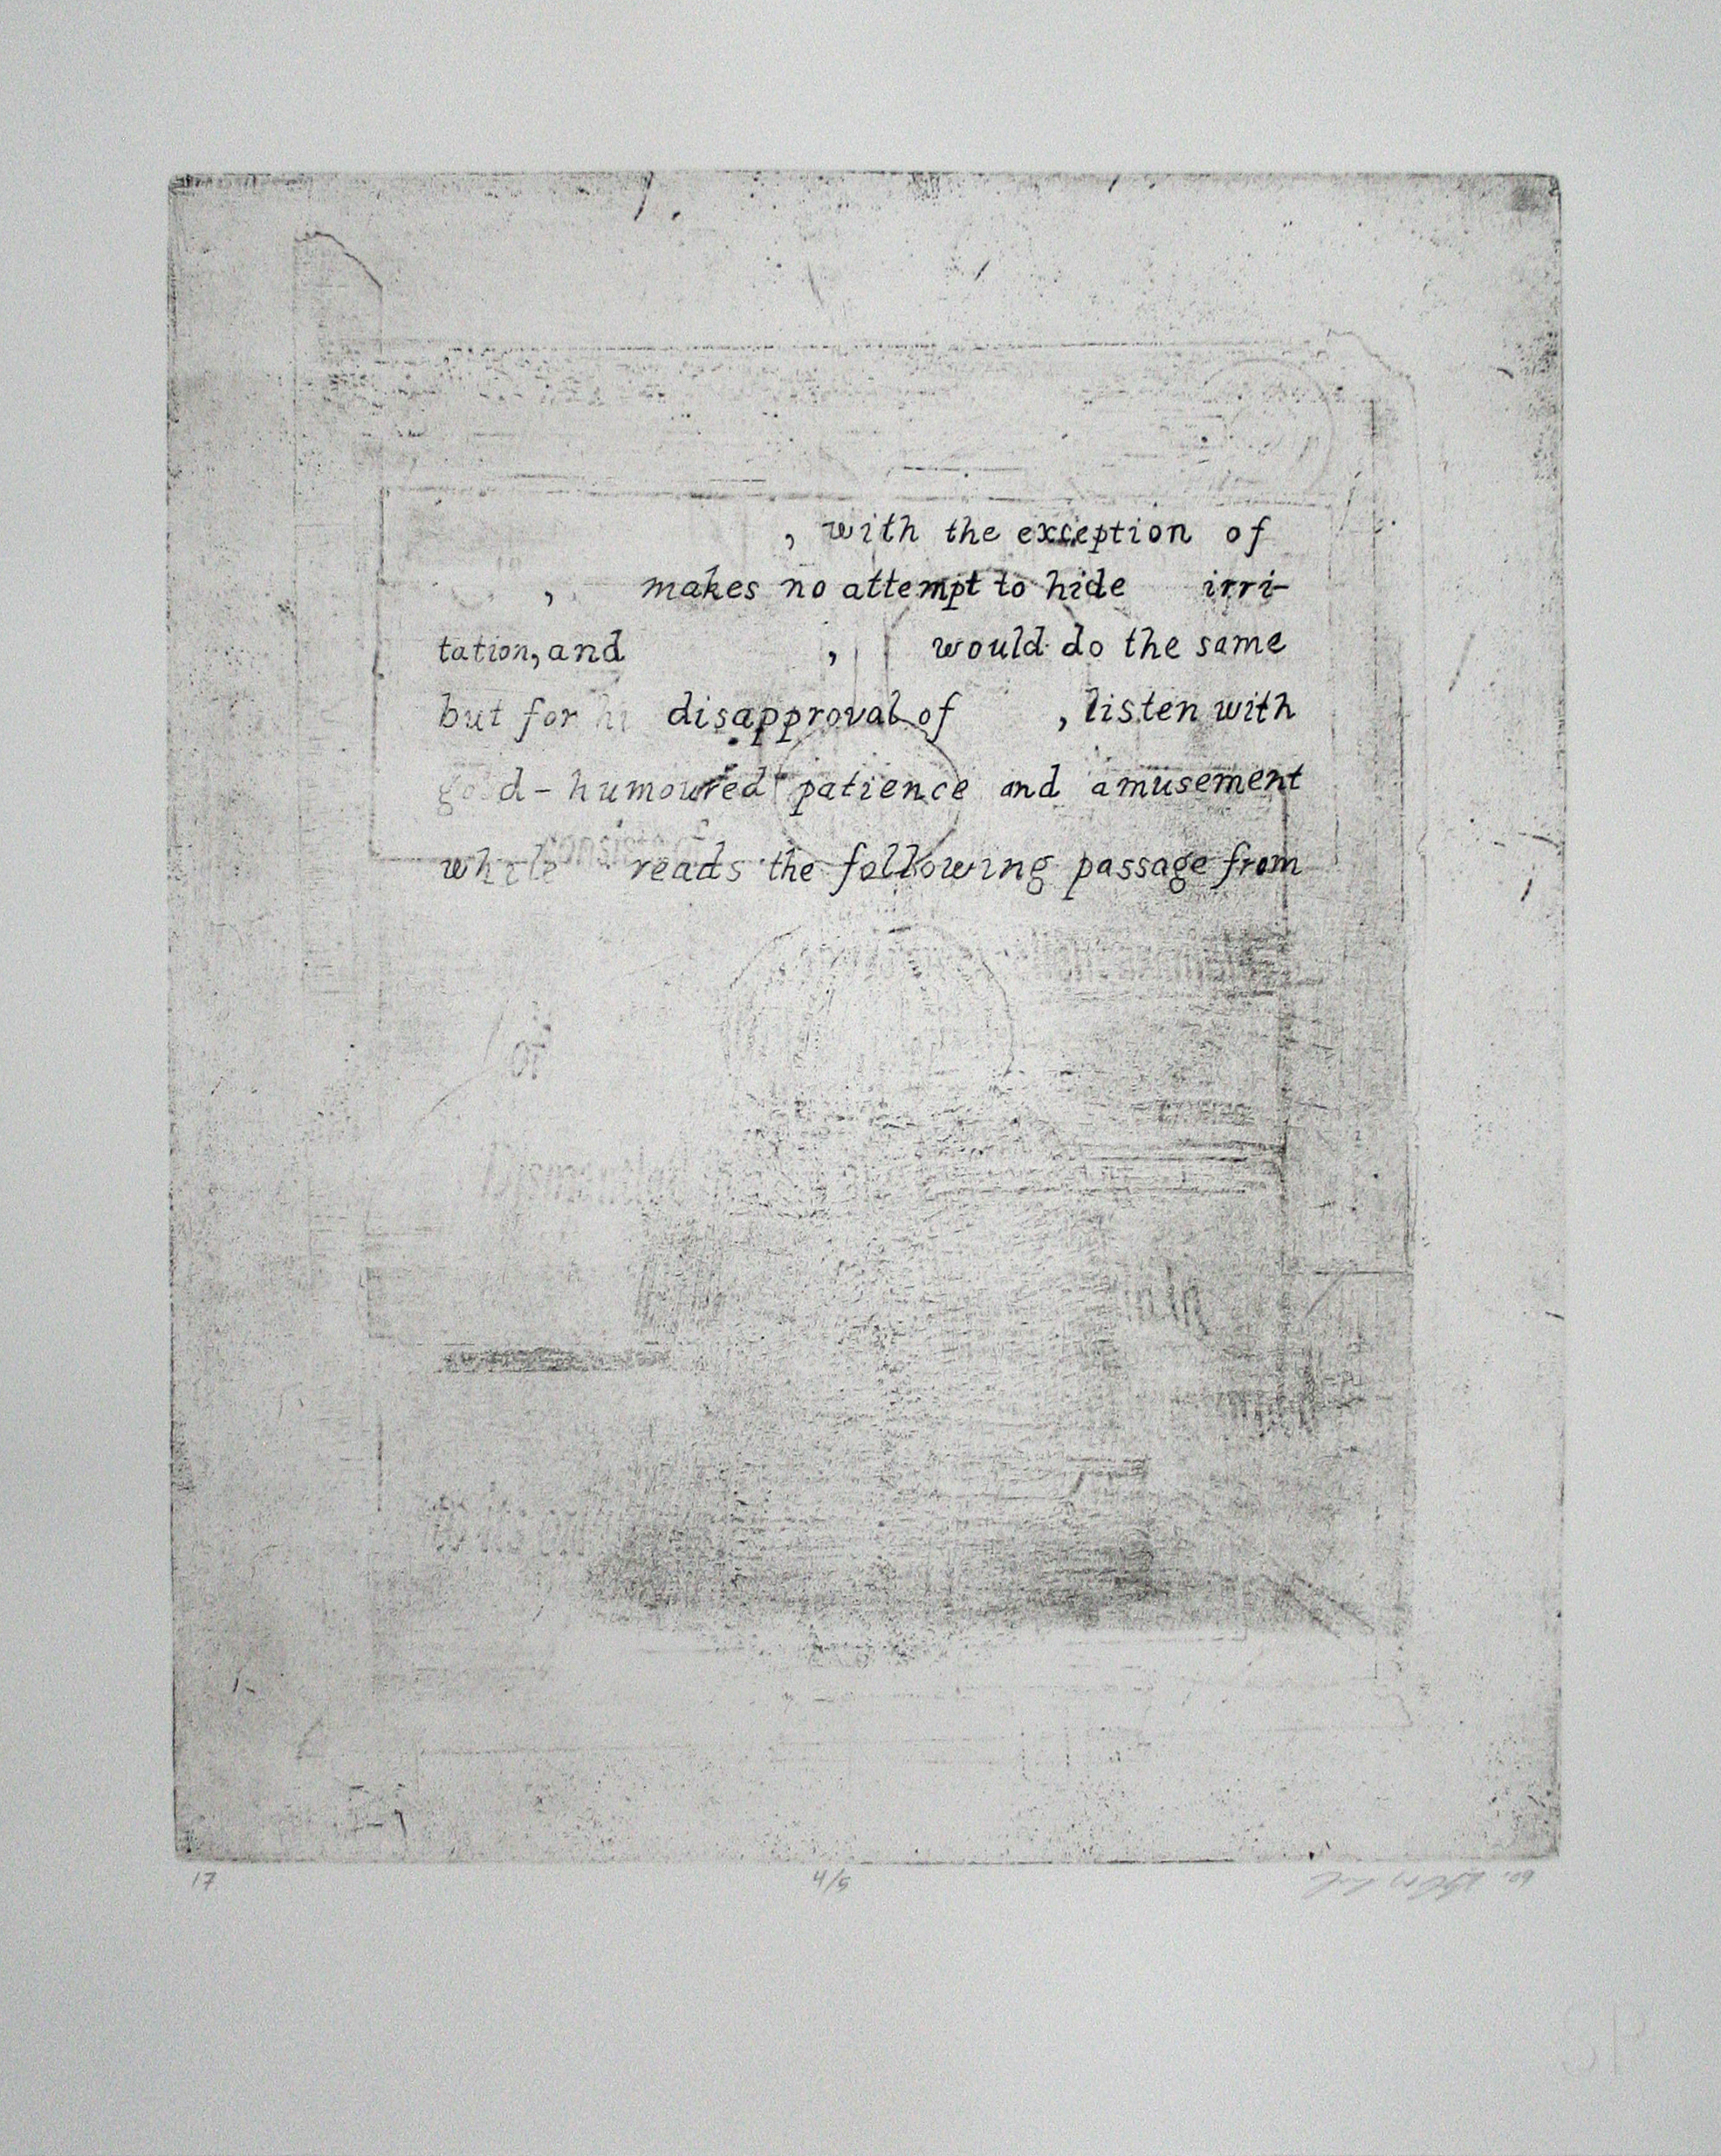 , with the exception of
, makes no attempt to hide irri-
tation, and , would do the same
but for hi disapproval of , listen with
good-humoured patience and amusement
while reads the following passage from
or
17 4/5 '09
SP